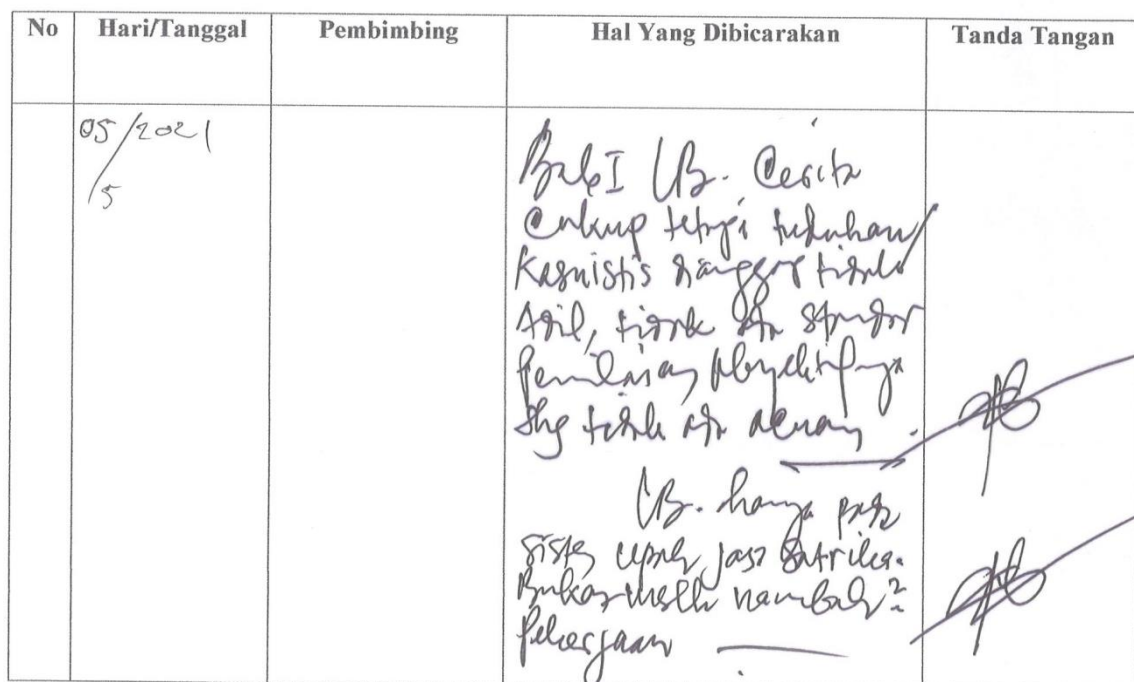 No Hari/Tanggal Pembimbing Hal Yang Dibicarakan Tanda Tangan
05/2021
/5
Bab I LB. Cerita
Cukup tetapi tuduhan
Kasuistis dianggap tidak
Adil, tidak ada standar
penilaian obyektifnya
Shg tidak ada acuan.
LB. hanya pada
sistem upah jasa Satrika.
Bukan nambah²
Pekerjaan